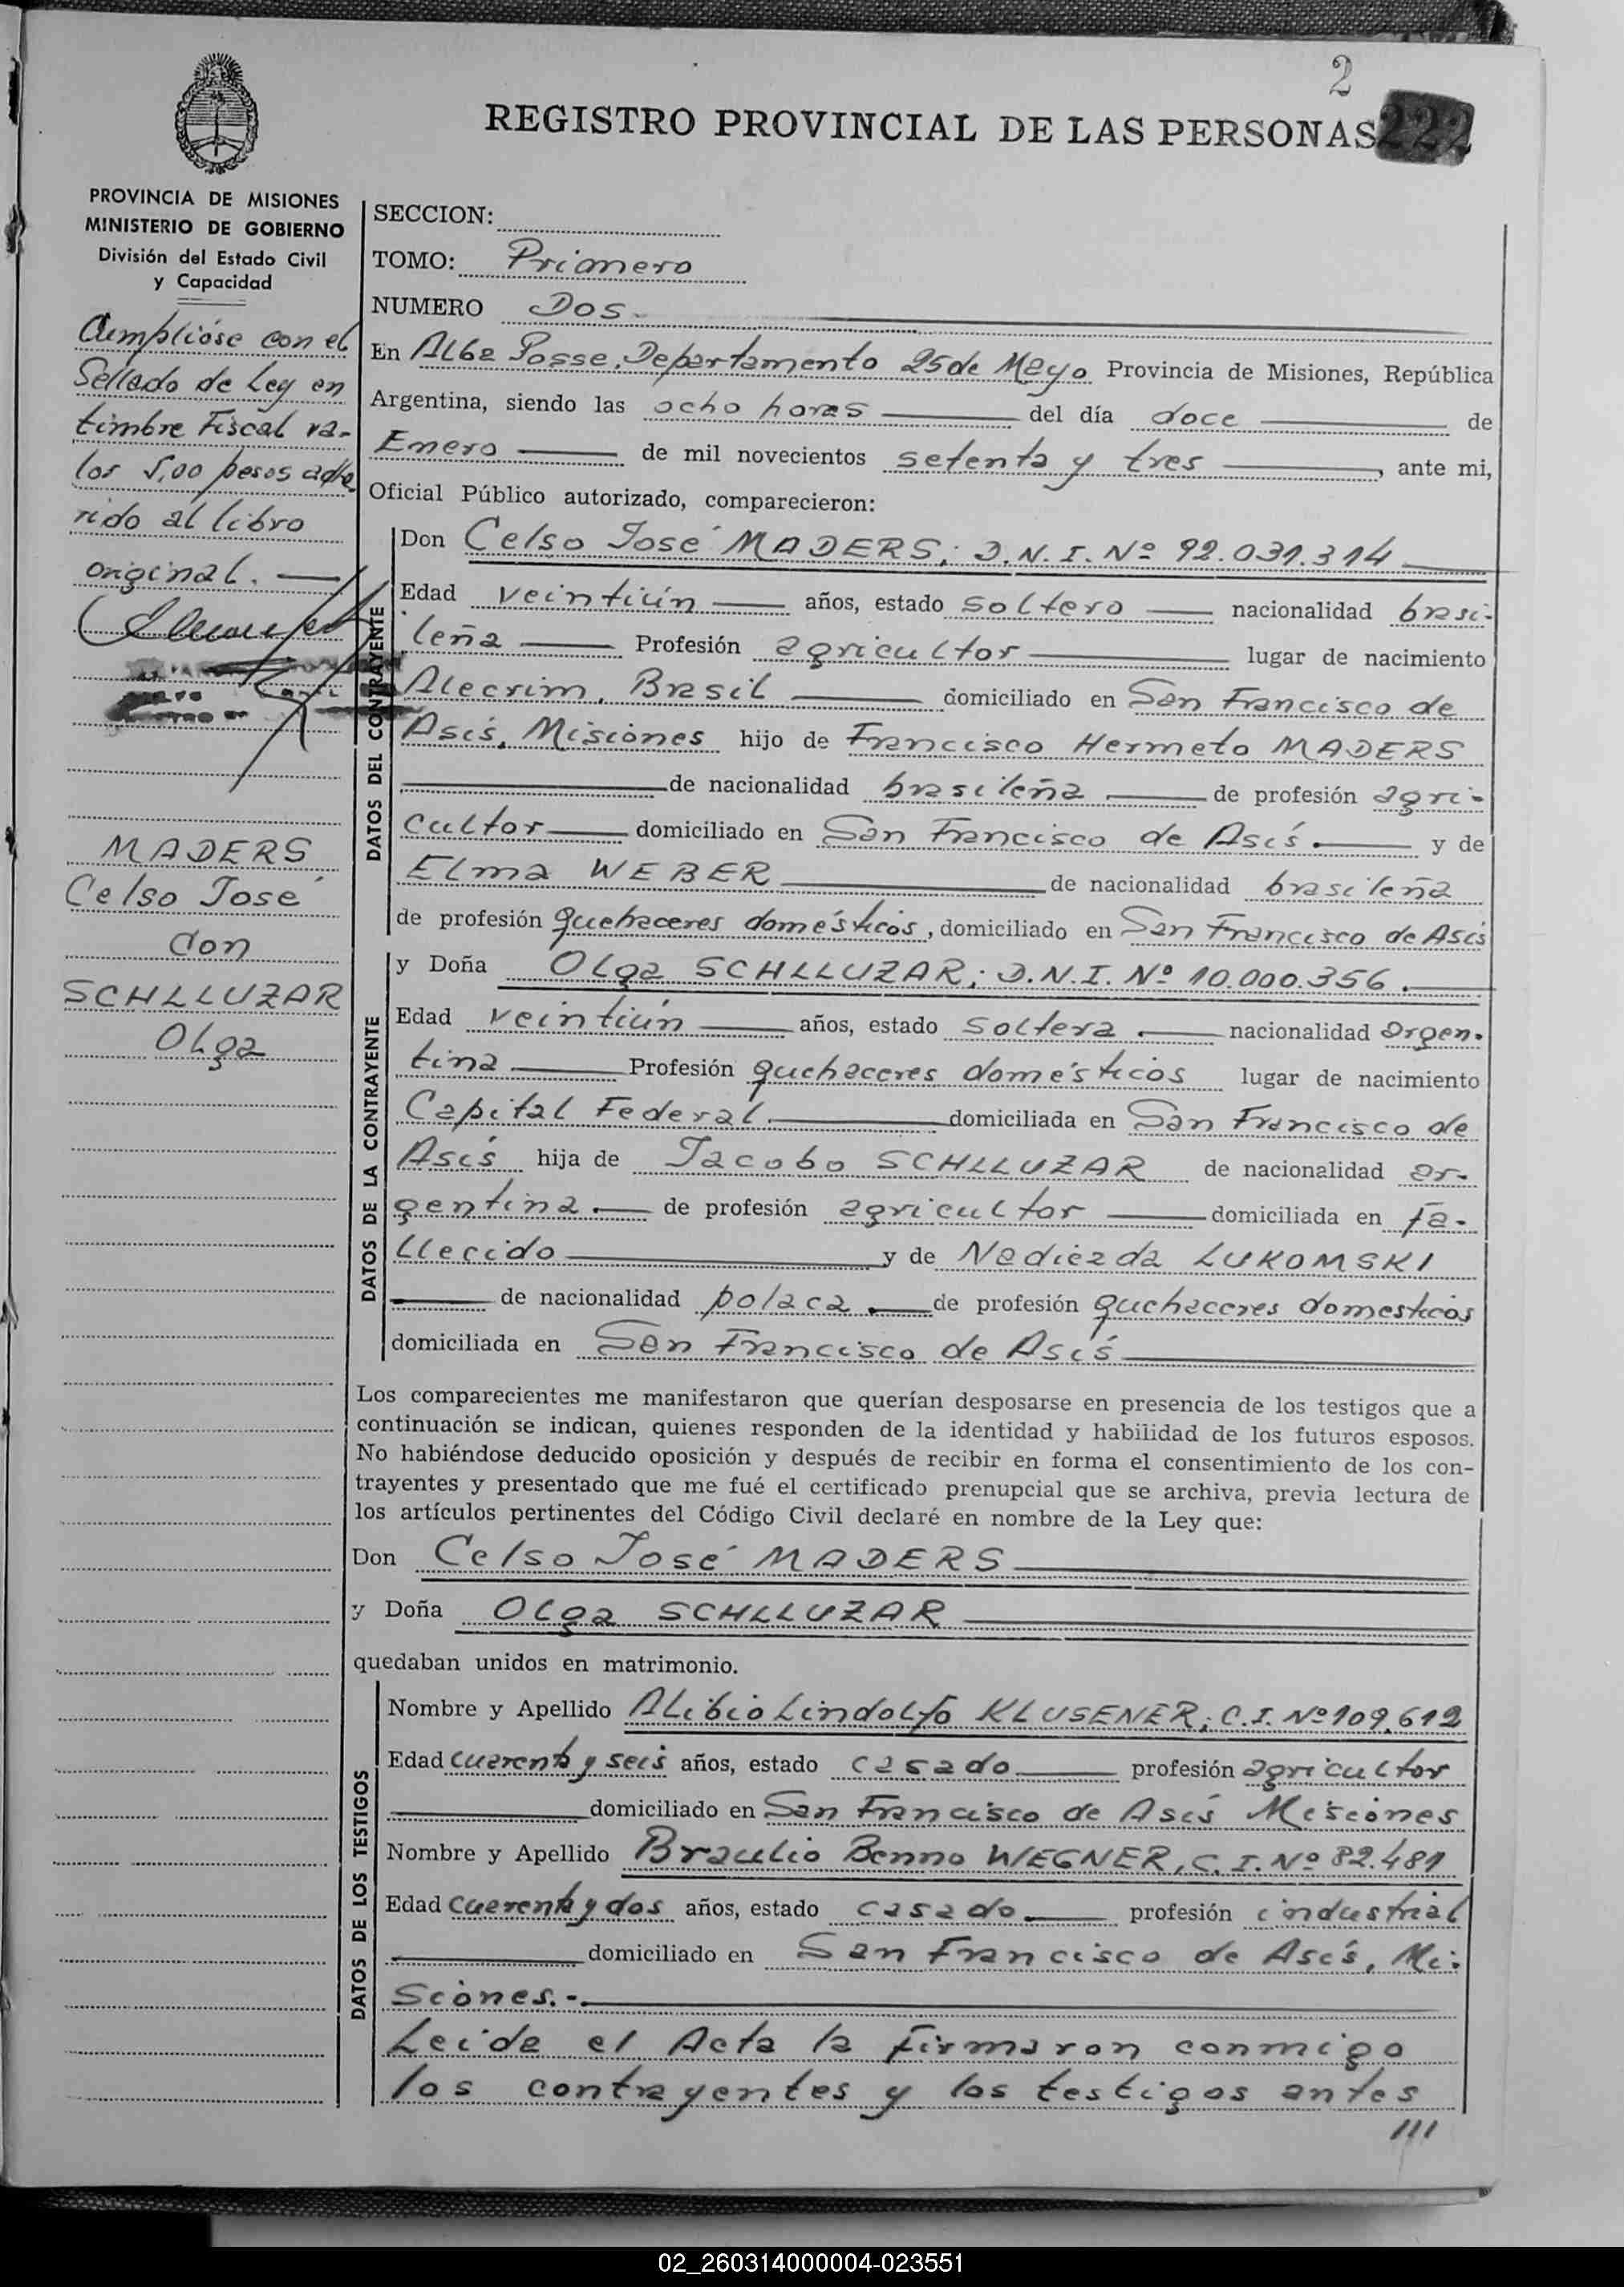 2
222
REGISTRO PROVINCIAL DE LAS PERSONAS
PROVINCIA DE MISIONES
MINISTERIO DE GOBIERNO
División del Estado Civil
y Capacidad
Cumplióse con el
Sellado de Ley en
timbre Fiscal va-
lor 5,00 pesos adhe
rido al libro
original.
MADERS
Celso José
con
SCHLLUZAR
Olga
SECCION:
TOMO: Primero
NUMERO Dos.
En Alba Posse, Departamento 25 de Mayo Provincia de Misiones, República
Argentina, siendo las ocho horas del día doce de
Enero de mil novecientos setenta y tres, ante mi,
Oficial Público autorizado, comparecieron:
DATOS DEL CONTRAYENTE
Don Celso José MADERS; D.N.I. Nº 92.031.314
Edad veintiún años, estado soltero nacionalidad brasi-
leña Profesión agricultor lugar de nacimiento
Alecrim, Brasil domiciliado en San Francisco de
Asís, Misiones hijo de Francisco Hermeto MADERS
de nacionalidad brasileña de profesión agri-
cultor domiciliado en San Francisco de Asís. y de
Elma WEBER de nacionalidad brasileña
de profesión quehaceres domésticos, domiciliado en San Francisco de Asís
DATOS DE LA CONTRAYENTE
y Doña Olga SCHLLUZAR; D.N.I. Nº 10.000.356.
Edad veintiún años, estado soltera. nacionalidad argen-
tina Profesión quehaceres domésticos lugar de nacimiento
Capital Federal. domiciliada en San Francisco de
Asís hija de Jacobo SCHLLUZAR de nacionalidad ar-
gentina. de profesión agricultor domiciliada en fa-
llecido y de Nadiezda LUKOMSKI
de nacionalidad polaca. de profesión quehaceres domesticos
domiciliada en San Francisco de Asís
Los comparecientes me manifestaron que querían desposarse en presencia de los testigos que a
continuación se indican, quienes responden de la identidad y habilidad de los futuros esposos.
No habiéndose deducido oposición y después de recibir en forma el consentimiento de los con-
trayentes y presentado que me fué el certificado prenupcial que se archiva, previa lectura de
los artículos pertinentes del Código Civil declaré en nombre de la Ley que:
Don Celso José MADERS
y Doña Olga SCHLLUZAR
quedaban unidos en matrimonio.
DATOS DE LOS TESTIGOS
Nombre y Apellido Alibio Lindolfo KLUSENER; C.I. Nº 109.612
Edad cuarenta y seis años, estado casado profesión agricultor
domiciliado en San Francisco de Asís Misiones
Nombre y Apellido Braulio Benno WEGNER, C.I. Nº 82.481
Edad cuarenta y dos años, estado casado. profesión industrial
domiciliado en San Francisco de Asís, Mi-
siones.-
Leida el Acta la firmaron conmigo
los contrayentes y los testigos antes
///
02_260314000004-023551